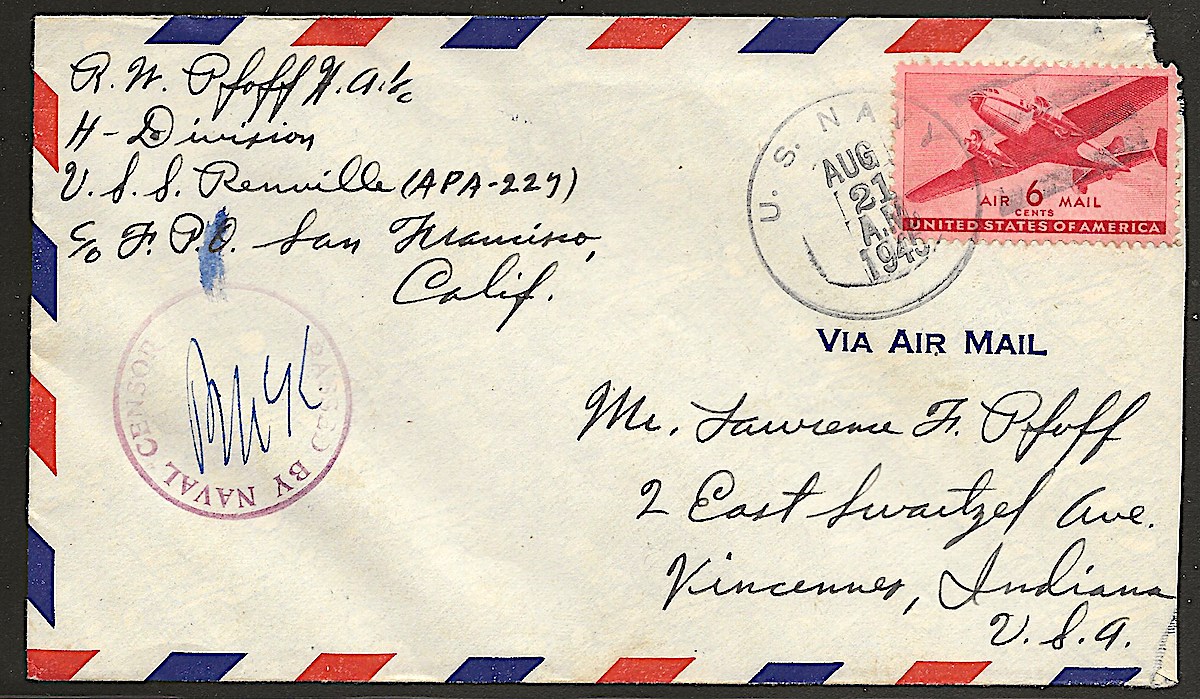 R. W. Pfoff H. A. 1/c
H-Division
U. S. S. Renville (APA-227)
c/o F. P. O. San Francisco,
Calif.
U. S. NAVY
AUG
21
A.M.
1945
AIR 6 MAIL
CENTS
UNITED STATES OF AMERICA
VIA AIR MAIL
PASSED BY NAVAL CENSOR
Mr. Lawrence F. Pfoff
2 East Swartzel Ave.
Vincennes, Indiana
U. S. A.